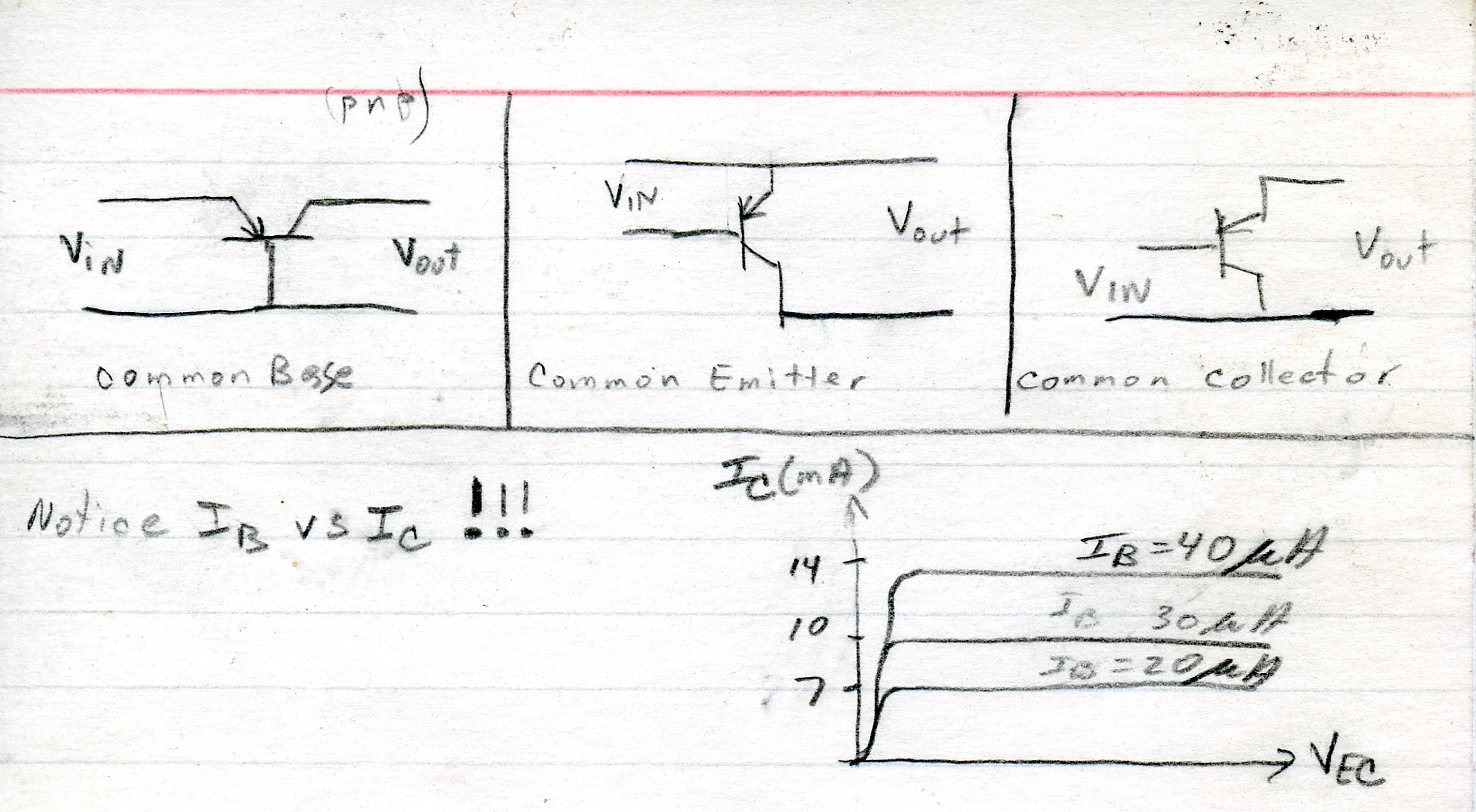 (pnp)
VIN
Vout
Common Base
VIN
Vout
Common Emitter
VIN
Vout
Common Collector
Notice IB vs IC !!!
IC(mA)
14
10
7
IB=40μA
IB 30μA
IB=20μA
VEC